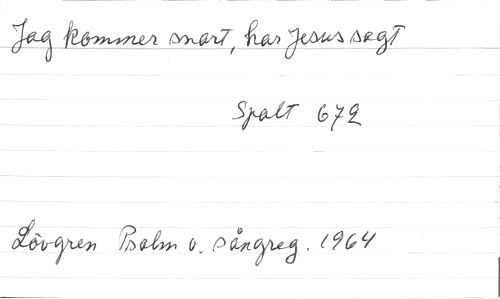 Jag kommer snart, har Jesus sagt
Spalt 672
Lövgren Psalm o. sångreg. 1964